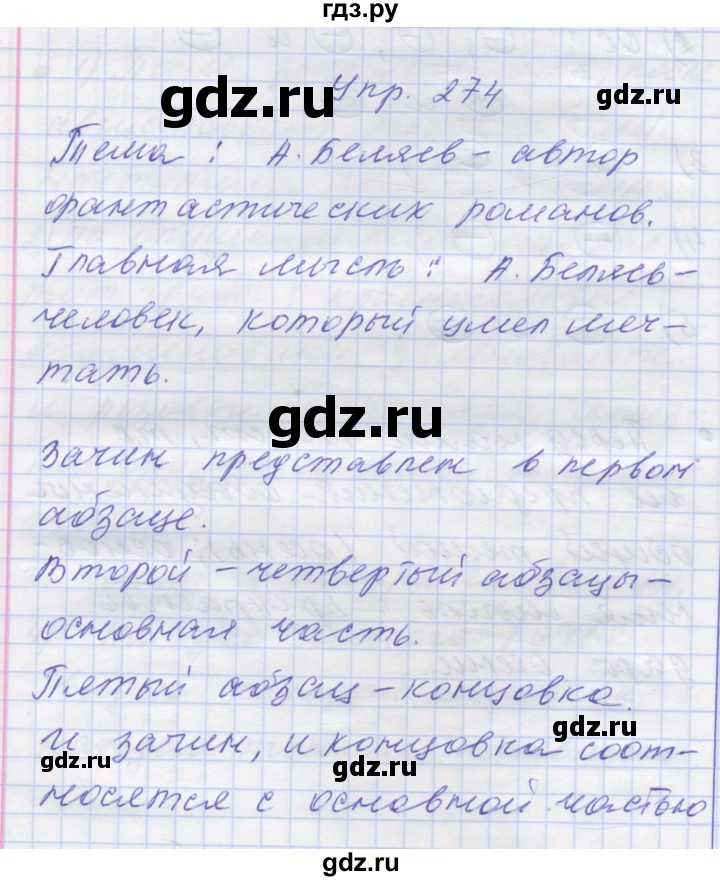 гдз.ру
Упр. 274
gdz.ru
Тема : А. Беляев – автор
фантастических романов.
Главная мысль : А. Беляев –
человек, который умел меч-
тать.
gdz.ru
Зачин представлен в первом
абзаце.
Второй – четвертый абзацы –
основная часть.
Пятый абзац – концовка.
gdz.ru
И зачин, и концовка соот-
gdz.ru
gdz.ru
носятся с основной частью
gdz.ru